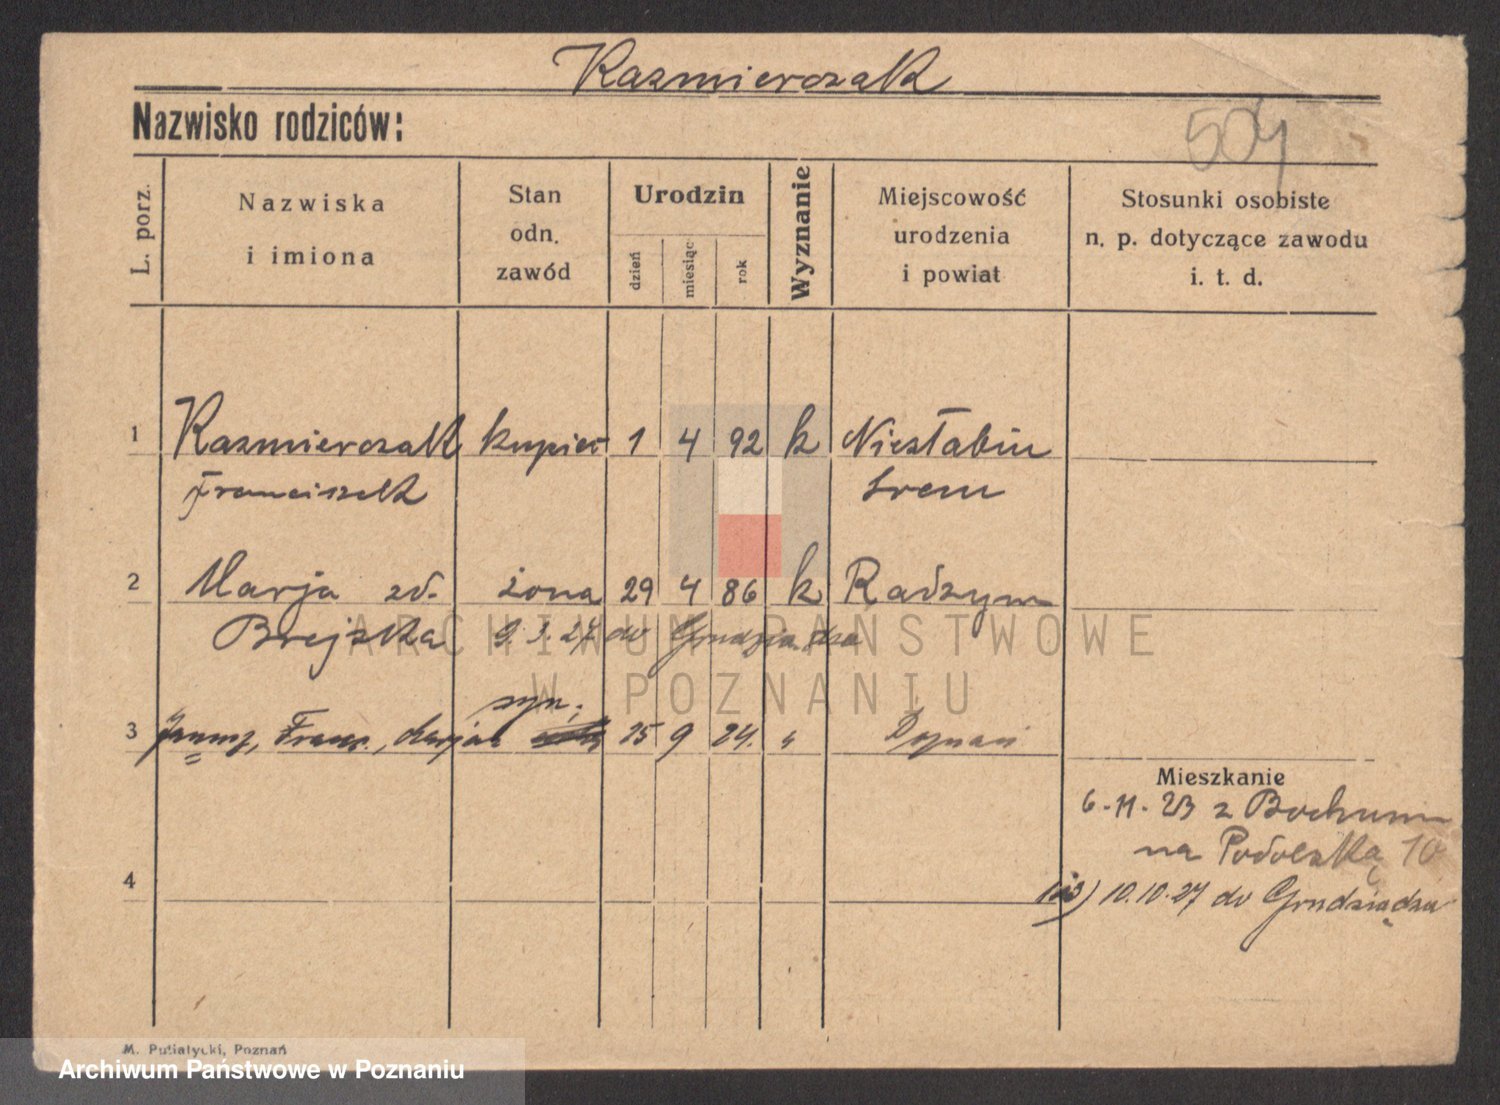 Kazmierczak
Nazwisko rodziców:
504
L. porz.
Nazwiska
i imiona
Stan
odn.
zawód
Urodzin
dzień
miesiąc
rok
Wyznanie
Miejscowość
urodzenia
i powiat
Stosunki osobiste
n. p. dotyczące zawodu
i. t. d.
1 Kazmierczak kupiec 1 4 92 k Niesłabin
Franciszek Srem
2 Marja zd. żona 29 4 86 k Radzym
Brejska 9.3.27 do Grudziądza
syn.
3 Janusz, Franc., Marjan 25 9 24. " Poznań
Mieszkanie
6.11.23 z Bochum
na Podolską 10
4
1 i 3) 10.10.27 do Grudziądza
M. Putiatycki, Poznań
ARCHIWUM PAŃSTWOWE
W POZNANIU
Archiwum Państwowe w Poznaniu